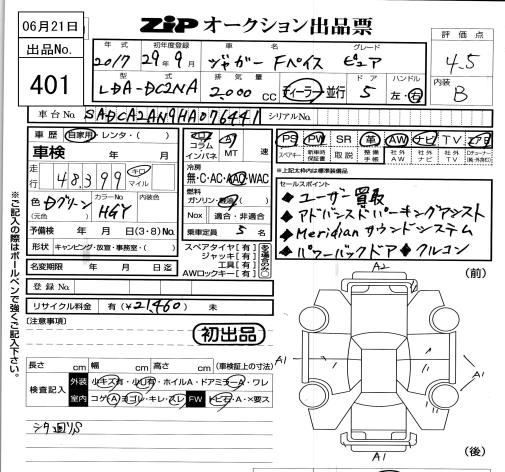 06月21日
出品No.
401
ZIP オークション出品票
年式 初年度登録 車名 グレード
2017 29年9月 ジャガー Fペイス ピュア
型式 排気量 ドア ハンドル
LDA-DC2NA 2,000 CC ディーラー・並行 5 左・右
評価点
4.5
内装
B
車台No. SADCA2AN9HA076441 シリアルNo.
車歴 自家用・レンタ・( )
車検 年 月
走行 48,399 キロ マイル
色 Dグリーン (元色) カラーNo. H6Y 内装色
予備検 年 月 日(3・8)No.
形状 キャンピング・放宣・事務室・( )
名変期限 年 月 日迄
登録No.
リサイクル料金 有(¥21,460) 未
コラム
インパネ
A
MT 速
冷房
無・C・AC・AAC・WAC
燃料
ガソリン・軽油( )
Nox 適合・非適合
乗車定員 5 名
スペアタイヤ[有]
ジャッキ[有]
工具[有]
AWロックキー[有]
PS PW SR 革 AW ナビ TV エアB
スペアキー 新車時保証書 取説 整備手帳 社外AW 社外ナビ 社外TV
*上記太枠内は標準装備品
セールスポイント
◆ユーザー買取
◆アドバンスドパーキングアシスト
◆Meridianサウンドシステム
◆パワーバックドア◆クルコン
※ご記入の際はボールペンで強くご記入下さい。
[注意事項]
初出品
長さ cm 幅 cm 高さ cm (車検証上の寸法)
検査記入
外装 小キズ有・小凹有・ホイルA・ドアミラーA・ワレ
室内 コゲA・ヨゴレ・キレ・スレ FW トビ石・A・×要ス
シタ廻りS
A2
(前)
A1
A1
A1
(後)